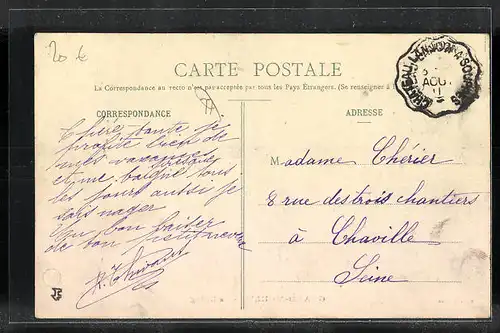 20 €
CARTE POSTALE
La Correspondance au recto n'est pas acceptée par tous les Pays Étrangers. (Se renseigner à
CORRESPONDANCE
ADRESSE
Chère tante je
profite bien de
mes vacances
et me baigne presque tous
les jours aussi je
sais nager
Un bon baiser
de ton petit neveu
Madame Chérier
8 rue des trois chantiers
à Chaville
Seine
AOUT
11